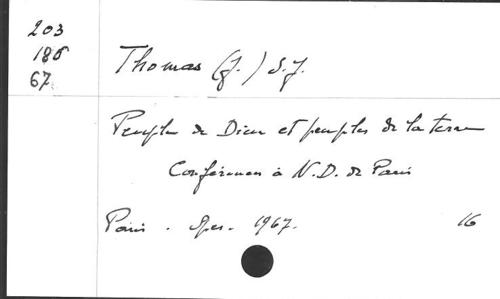 203
186
67
Thomas (J.) S.J.
Peuple de Dieu et peuples de la terre
Conférences à N.D. de Paris
Paris . Spes . 1967. 16